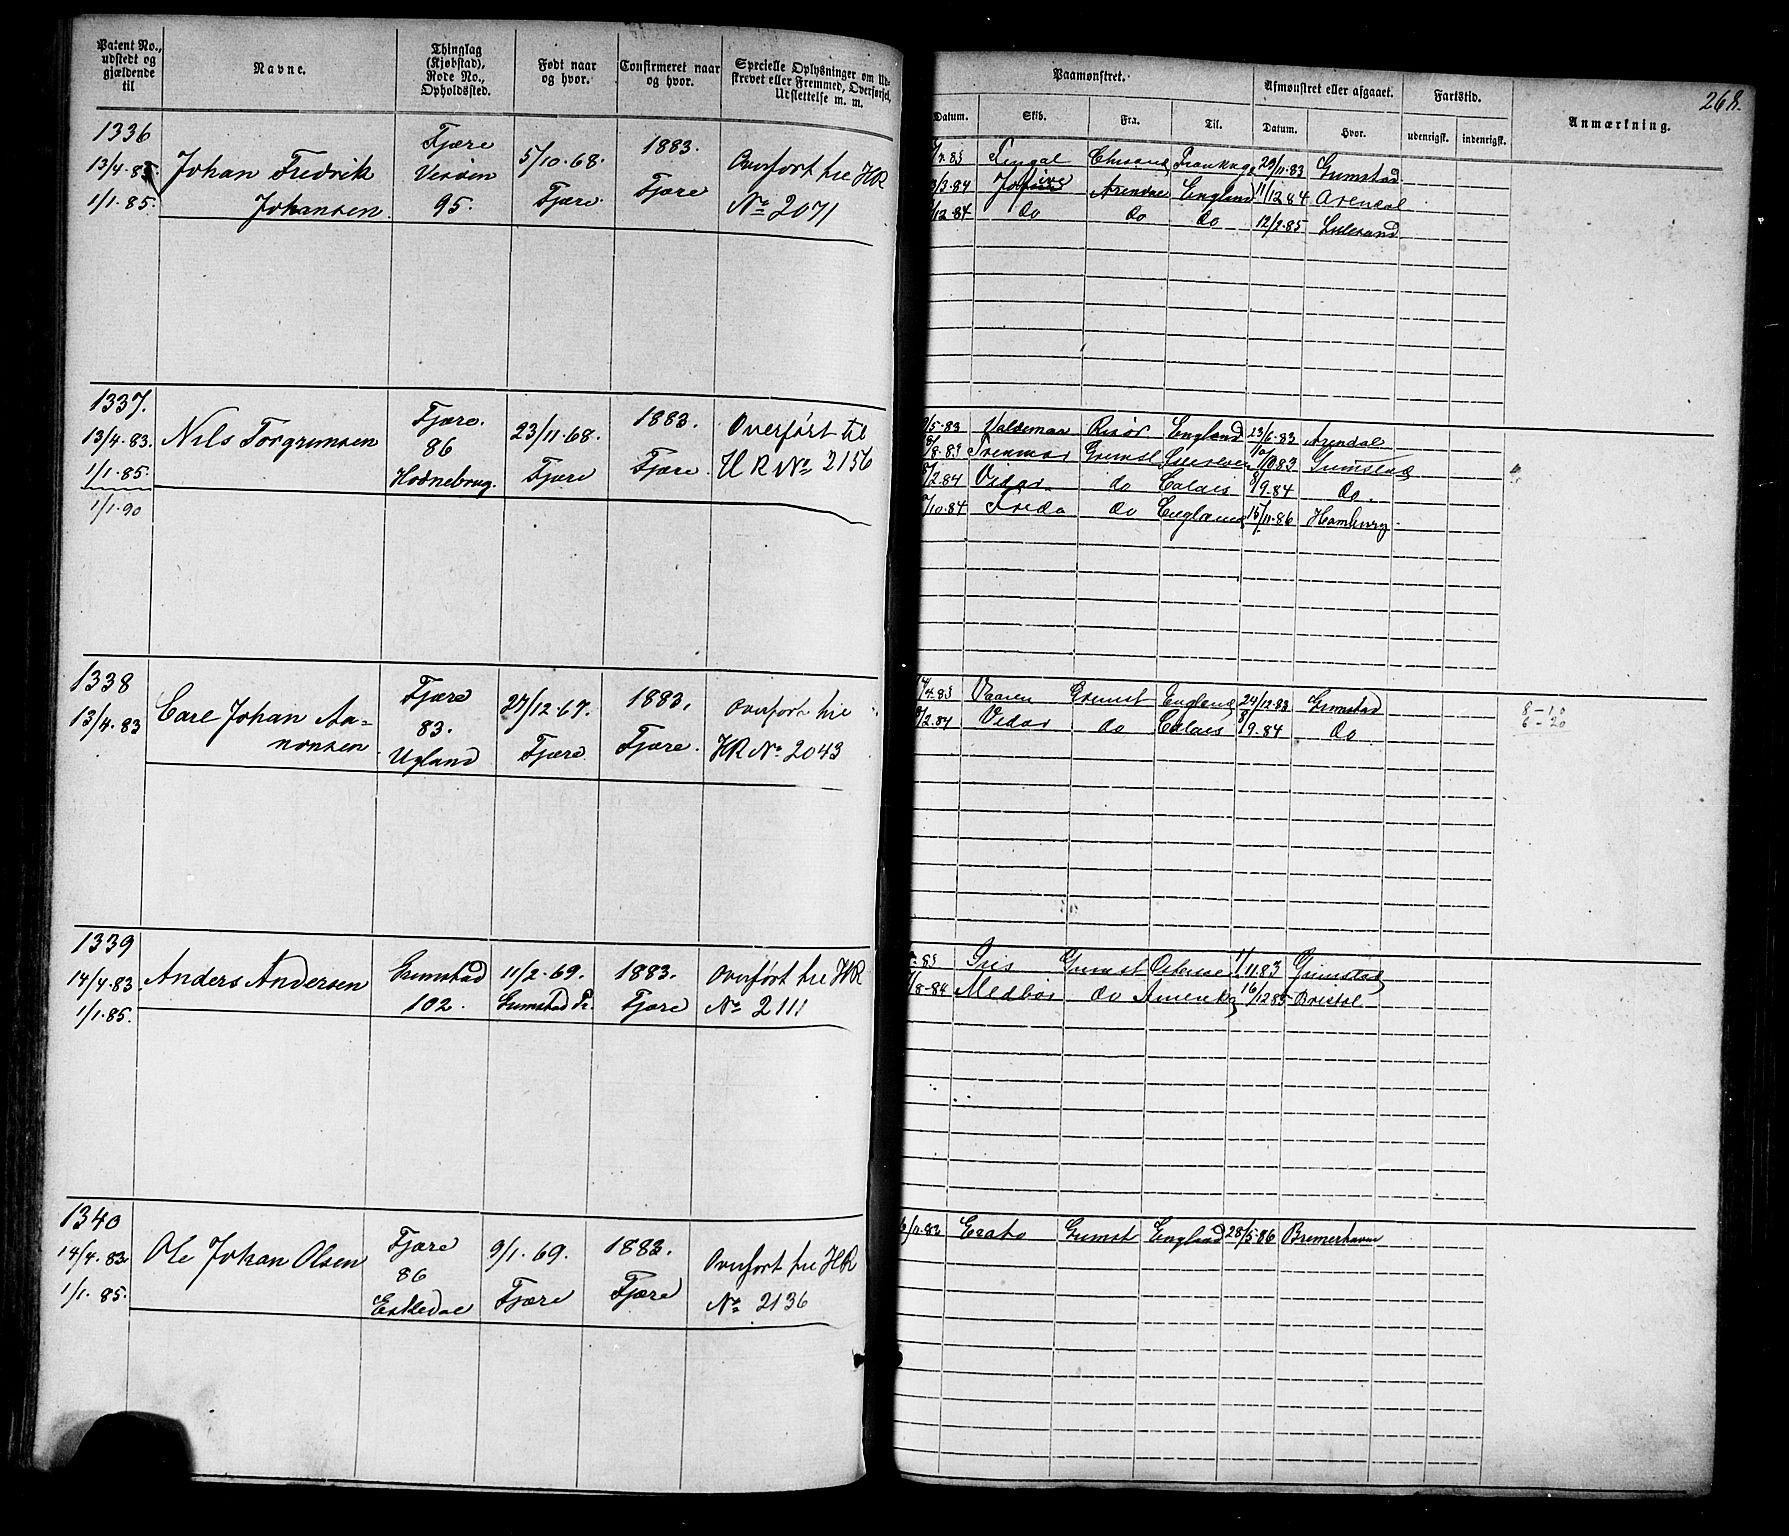 Patent No., udstedt og gjældende til
Navne.
Thinglag (Kjøbstad). Rode No., Opholdssted.
Født naar og hvor.
Confirmeret naar og hvor.
Specielle Oplysninger om Udskrevet eller Fremmed, Overførsel, Udslettelse m. m.
Paamønstret.
Afmønstret eller afgaaet.
Fartstid.
Anmærkning.
268.
Datum.
Skib.
Fra.
Til.
Datum.
Hvor.
udenrigsk.
indenrigsk.
1336
13/4 83
1/1.85.
Johan Fredrik
Johansen
Fjære
95.
5/10.68.
Fjære
1883.
Fjære
Overført til HR
No 2071
29/11.83 Grimstad
3/3.84 Arendal England 11/12 84 Arendal
/12 84 do do do 12/2.85 Lillesand
1337.
13/4.83.
1/1.85.
1/1.90
Nils Torgrimsen
Fjære.
86
23/11.68.
Fjære
1883.
Fjære.
Overført til
HR No 2156
/5.83 Valdemar Risør England 23/6.83 Arendal
/8.83 Grimst 83 Grimstad
/2.84 Vidar do Calais 8/9.84 do.
/10.84 Freda do England 15/11.86 Hamburg
1338
13/4.83
Carl Johan Aa-
nonsen
Fjære
83.
Ugland
27/12.67.
Fjære
1883.
Fjære.
Overført til
HR No 2043
/4.83 Vaaren Grimst England 24/12.83 Grimstad
/2.84 Vidar do Calais 8/9.84 do
8-10
6-20
1339
14/4.83
1/1.85.
Anders Andersen
Grimstad
102.
11/2.69.
Grimstad
1883.
Fjære
Overført til HR
No 2111
83 Grimst 11.83 Grimstad
/8-84 Medbør do Amerika 16/12 85 Bristol
1340
14/4.83
1/1.85.
Ole Johan Olsen
Fjære
86
Eskedal
9/1.69.
Fjære
1883.
Fjære
Overført til HR
No 2136
Erato Grimst England 28/5.86 Bremerhaven